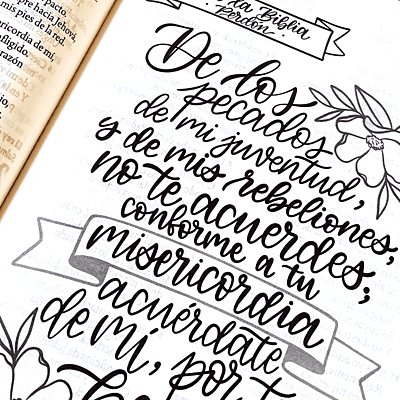 pacto.
pre hacia Jehová,
mis pies de la red.
ricordia de mí,
fligido.
razón
la Biblia
perdón
De los
pecados
de mi juventud,
y de mis rebeliones,
no te acuerdes;
conforme a tu
misericordia
acuérdate
de mí, por